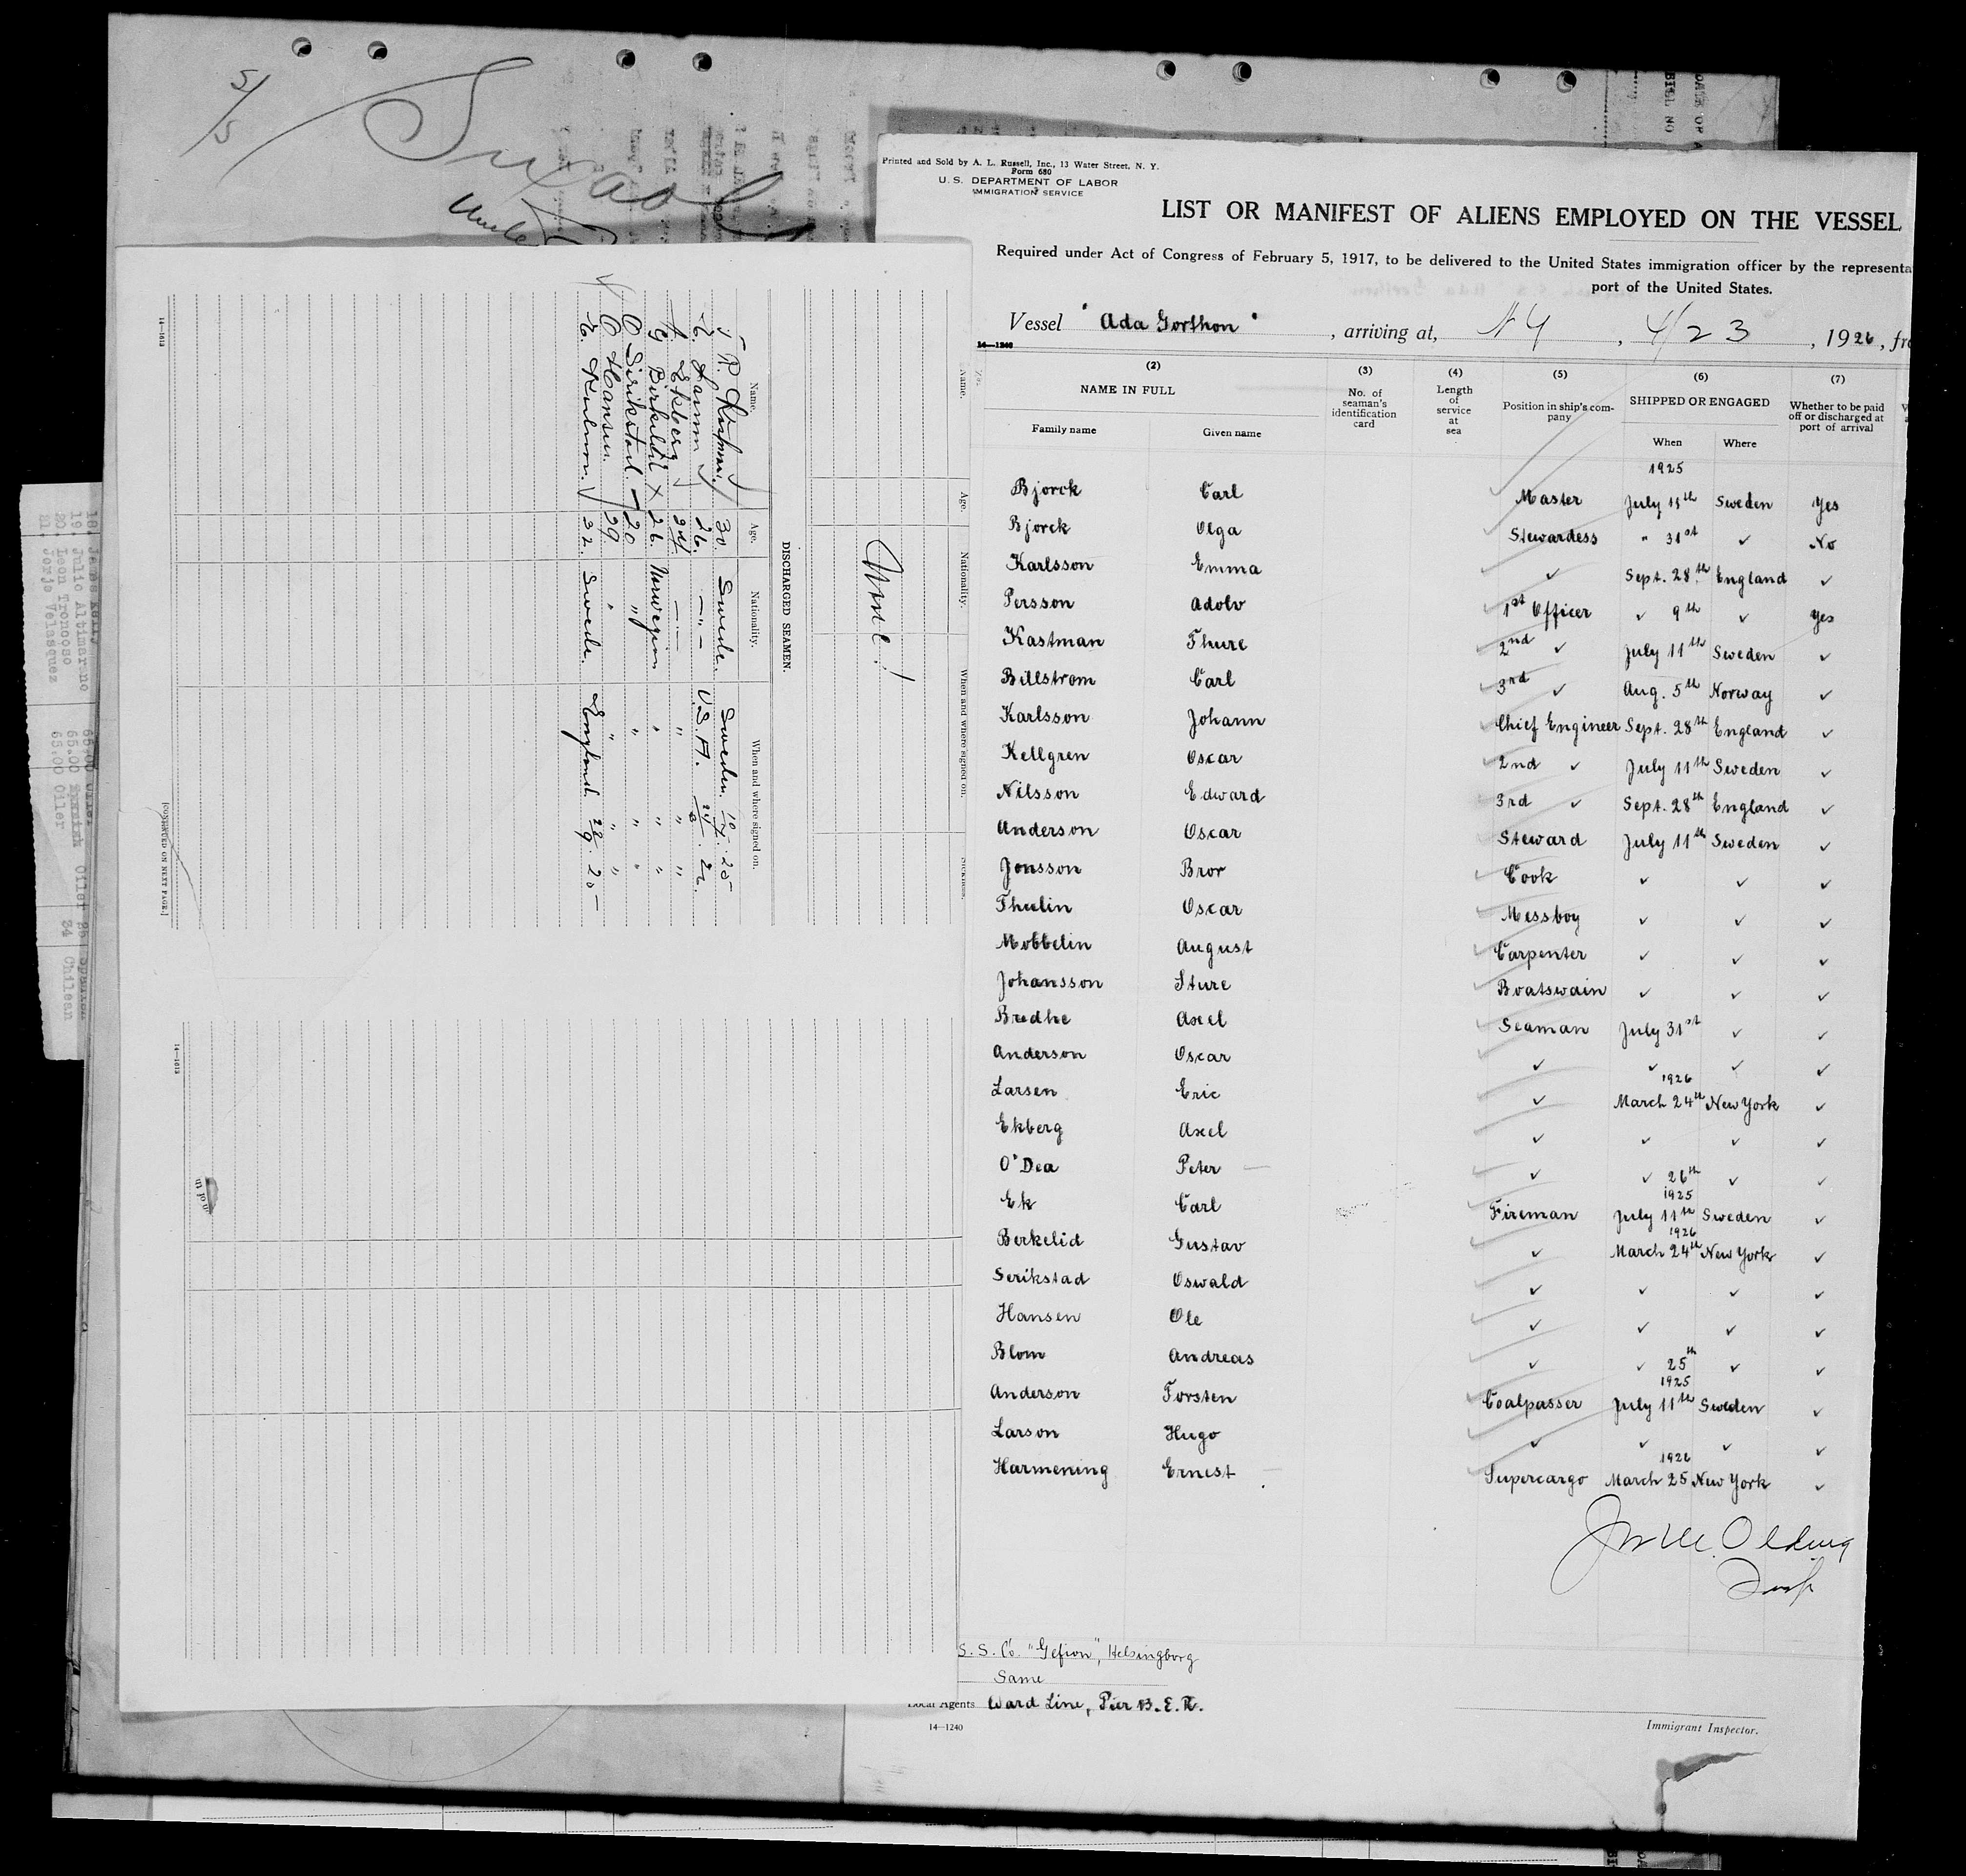 5/5
Printed and Sold by A. L. Russell, Inc., 13 Water Street, N. Y.
Form 680
U. S. DEPARTMENT OF LABOR
IMMIGRATION SERVICE
LIST OR MANIFEST OF ALIENS EMPLOYED ON THE VESSEL
Required under Act of Congress of February 5, 1917, to be delivered to the United States immigration officer by the representa
port of the United States.
Vessel "Ada Gorthon", arriving at, N Y, 4/23, 1926, fro
14—1240
(2) (3) (4) (5) (6) (7)
NAME IN FULL
Family name Given name
No. of seaman's identification card
Length of service at sea
Position in ship's company
SHIPPED OR ENGAGED
When Where
Whether to be paid off or discharged at port of arrival
1925
Bjorck Carl Master July 11th Sweden Yes
Bjorck Olga Stewardess " 31st ✓ No
Karlsson Emma ✓ Sept. 28th England ✓
Persson Adolv 1st Officer ✓ 9th ✓ Yes
Kastman Thure 2nd ✓ July 11th Sweden ✓
Billstrom Carl 3rd ✓ Aug. 5th Norway ✓
Karlsson Johann Chief Engineer Sept. 28th England ✓
Kellgren Oscar 2nd ✓ July 11th Sweden ✓
Nilsson Edward 3rd ✓ Sept. 28th England ✓
Anderson Oscar Steward July 11th Sweden ✓
Jonsson Bror Cook ✓ ✓ ✓
Thulin Oscar Messboy ✓ ✓ ✓
Mobbelin August Carpenter ✓ ✓ ✓
Johansson Sture Boatswain ✓ ✓ ✓
Bredhe Axel Seaman July 31st ✓ ✓
Anderson Oscar ✓ ✓ ✓ ✓
1926
Larsen Eric ✓ March 24th New York ✓
Ekberg Axel ✓ ✓ ✓ ✓
O'Dea Peter — ✓ ✓ 26th ✓ ✓
1925
Ek Carl Fireman July 11th Sweden ✓
1926
Berkelid Gustav ✓ March 24th New York ✓
Serikstad Oswald ✓ ✓ ✓ ✓
Hansen Ole ✓ ✓ ✓ ✓
Blom Andreas ✓ ✓ 25th ✓ ✓
1925
Anderson Torsten Coalpasser July 11th Sweden ✓
Larson Hugo ✓ ✓ ✓ ✓
1926
Harmening Ernest — Supercargo March 25 New York ✓
S. S. Co. "Gefion", Helsingborg
Same
Local Agents Ward Line, Pier 13. E. R.
14—1240
Immigrant Inspector.
Name. Age. Nationality. When and where signed on.
None!
DISCHARGED SEAMEN.
Name. Age. Nationality. When and where signed on.
30. Swede. Sweden. 10/7. 25
26. — " — U.S.A. 24/3. 26.
Ekberg 24 — " — " " "
G Birkelid X 26. Norwegian " " "
O Sirikstad. — 20 " " " "
O Hansen. 29. " " " "
22. Swede. England. 28/9. 25 —
[CONTINUED ON NEXT PAGE]
14—1613
14—1613
19. Julio Altimarano 65.00
20. Leon Troncoso 65.00
21. Jorje Velasquez 65.00 Oiler 24 Chilean